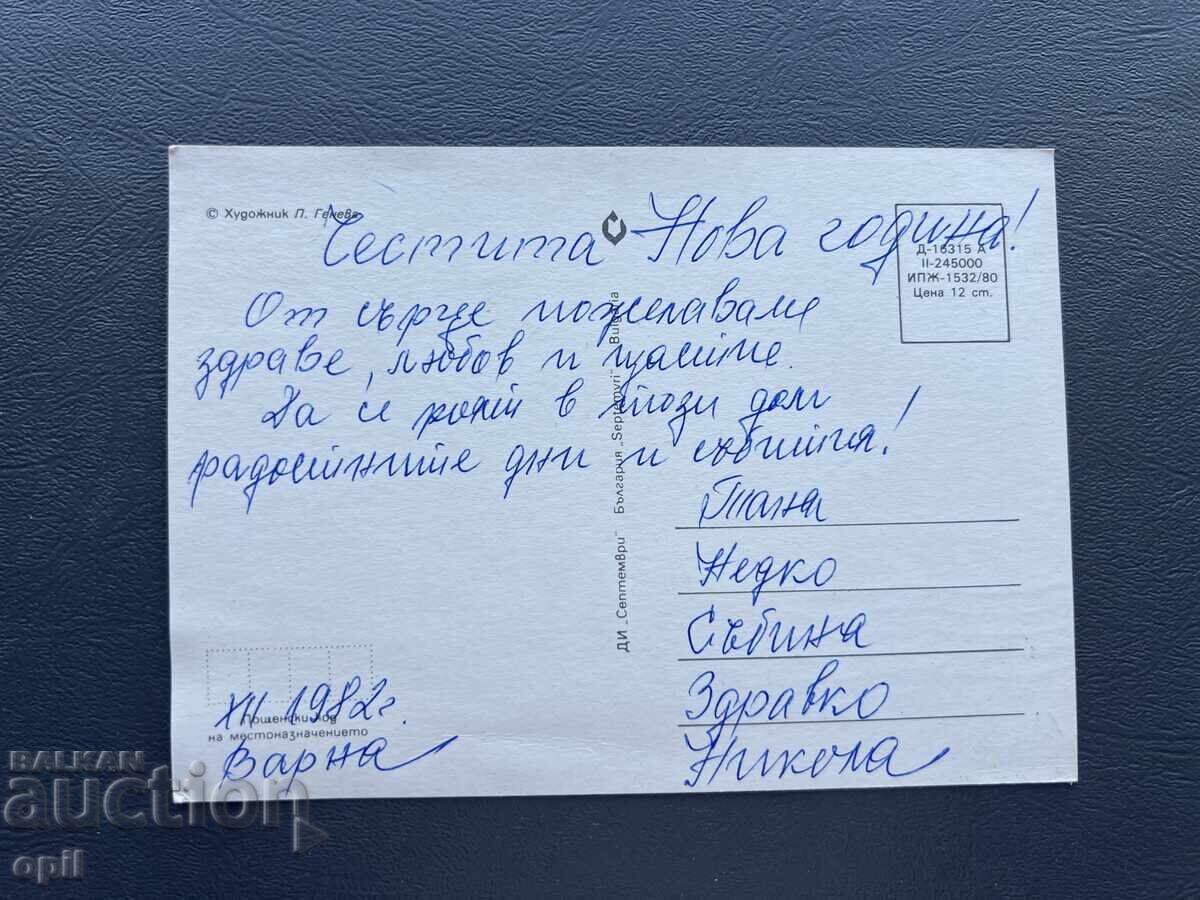 © Художник П. Генева
Честита Нова година!
Д-16315 А
II-245000
ИПЖ-1532/80
Цена 12 ст.
От сърце пожелаваме
здраве, любов и щастие.
Да се роят в този дом
радостните дни и събития!
ДИ „Септември" България „Septemvri" Bulgaria
Таня
Недко
Събина
Здравко
Никола
XII.1982г.
Варна
Пощенски код
на местоназначението
BALKAN
auction
opil